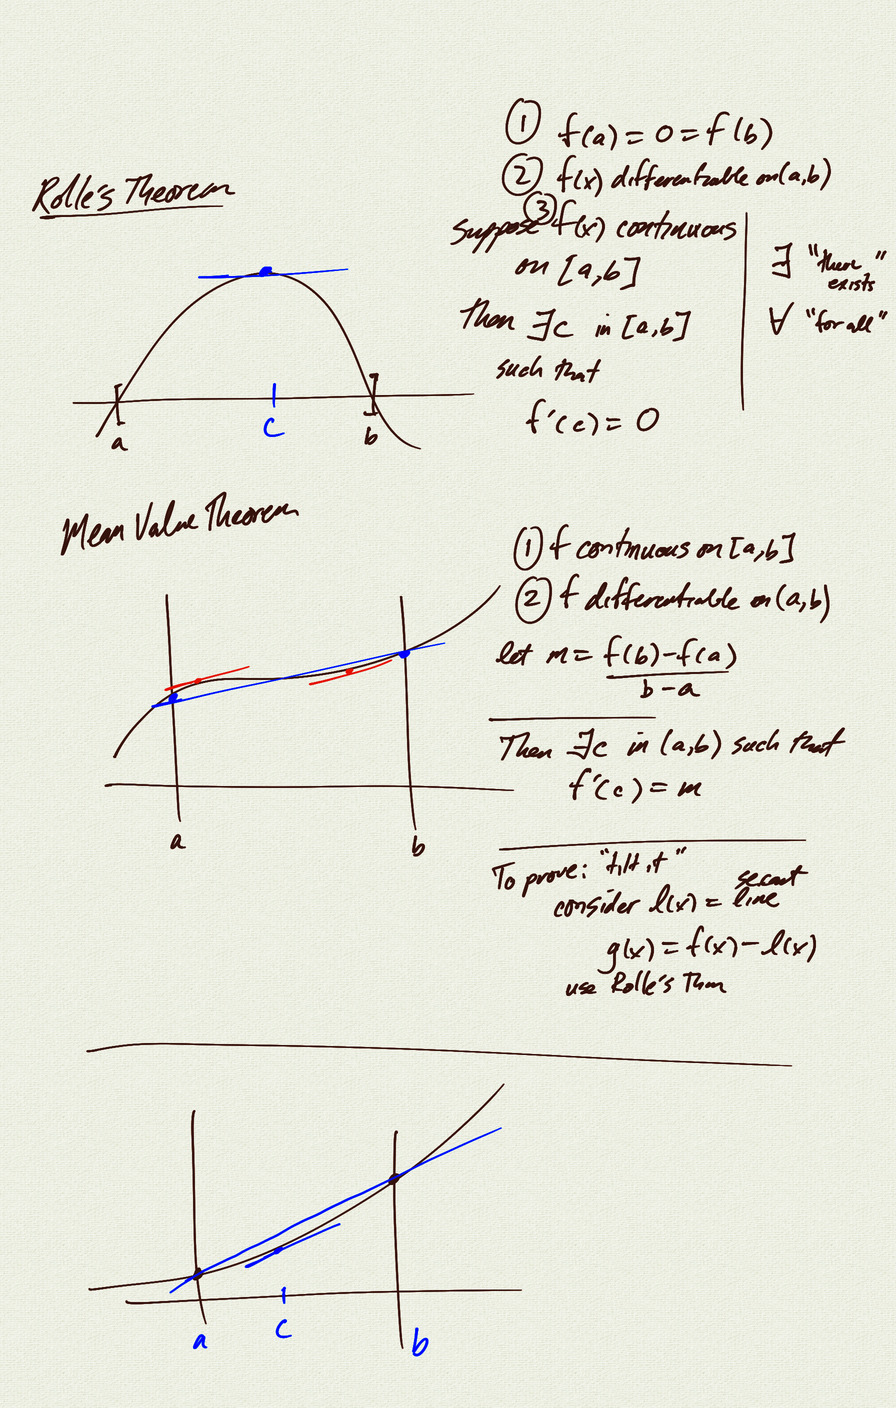 Rolle's Theorem
① f(a) = 0 = f(b)
② f(x) differentiable on (a,b)
Suppose ③ f(x) continuous
on [a,b]
Then ∃c in [a,b]
such that
f'(c) = 0
∃ "there exists"
∀ "for all"
a
c
b
Mean Value Theorem
① f continuous on [a,b]
② f differentiable on (a,b)
let m = f(b)-f(a)
b-a
Then ∃c in (a,b) such that
f'(c) = m
a
b
To prove: "tilt it"
consider l(x) = secant line
g(x) = f(x) - l(x)
use Rolle's Thm
a
c
b